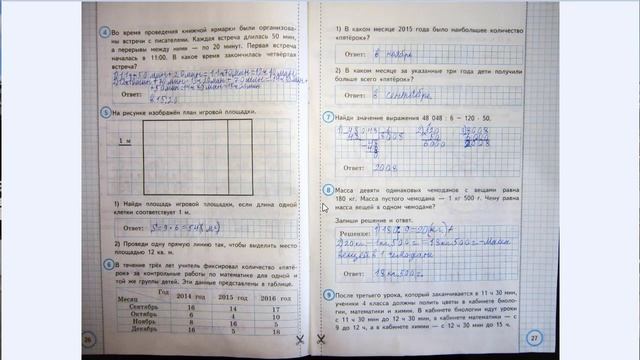 4 Во время проведения книжной ярмарки были организова-
ны встречи с писателями. Каждая встреча длилась 50 мин,
а перерывы между ними — по 20 минут. Первая встреча
началась в 11:00. В какое время закончилась четвёртая
встреча?
Ответ:
В 15:20
5 На рисунке изображён план игровой площадки.
1 м
1) Найди площадь игровой площадки, если длина одной
клетки соответствует 1 м.
Ответ:
2) Проведи одну прямую линию так, чтобы выделить место
площадью 12 кв. м.
6 В течение трёх лет учитель фиксировал количество «пятё-
рок» за контрольные работы по математике для одной и
той же группы детей. Эти данные представлены в таблице.
Год Месяц 2014 год 2015 год 2016 год
Сентябрь 16 14 17
Октябрь 6 4 10
Ноябрь 8 16 5
Декабрь 16 5 18
26
1) В каком месяце 2015 года было наибольшее количество
«пятёрок»?
Ответ: в ноябре
2) В каком месяце за указанные три года дети получили
больше всего «пятёрок»?
Ответ: в сентябре
7 Найди значение выражения 48 048 : 6 − 120 · 50.
Ответ: 2008
8 Масса девяти одинаковых чемоданов с вещами равна
180 кг. Масса пустого чемодана — 1 кг 500 г. Чему равна
масса вещей в одном чемодане?
Запиши решение и ответ.
Решение: 1) 180 : 9 = 20 (кг)
2) 20кг - 1кг 500г = 18кг 500г - масса
вещей в 1 чемодане
Ответ: 18кг 500г
9 После третьего урока, который заканчивается в 11 ч 30 мин,
ученики 4 класса должны полить цветы в кабинете биоло-
гии, математики и химии. В кабинете биологии идут уроки
с 11 ч 30 мин до 12 ч 30 мин, в кабинете математики — с
9 до 12 ч, а в кабинете химии — с 12 ч 30 мин до 15 ч.
27